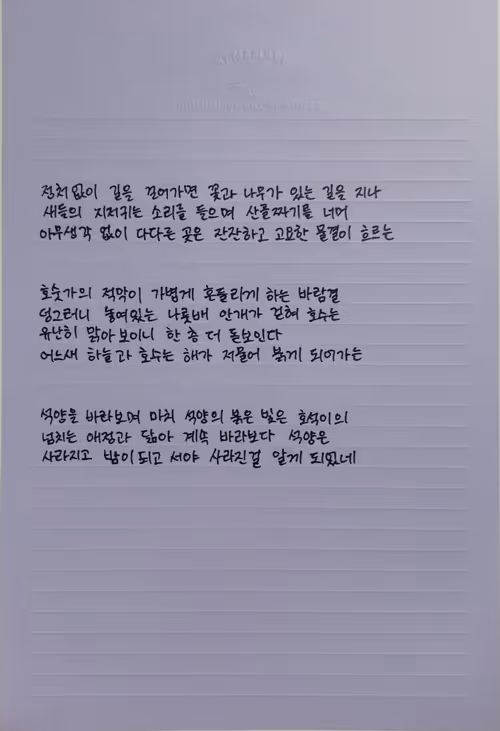 정처없이 길을 걸어가면 꽃과 나무가 있는 길을 지나
새들의 지저귀는 소리를 들으며 산골짜기를 너머
아무생각 없이 다다른 곳은 잔잔하고 고요한 물결이 흐르는
호숫가의 적막이 가볍게 흔들리게 하는 바람결
덩그러니 놓여있는 나룻배 안개가 걷혀 호수는
유난히 맑아보이니 한 층 더 돋보인다
어느새 하늘과 호수는 해가 저물어 붉게 되어가는
석양을 바라보며 마치 석양의 붉은 빛은 호석이의
넘치는 애정과 닮아 계속 바라보다 석양은
사라지고 밤이되고 서야 사라진걸 알게 되었네